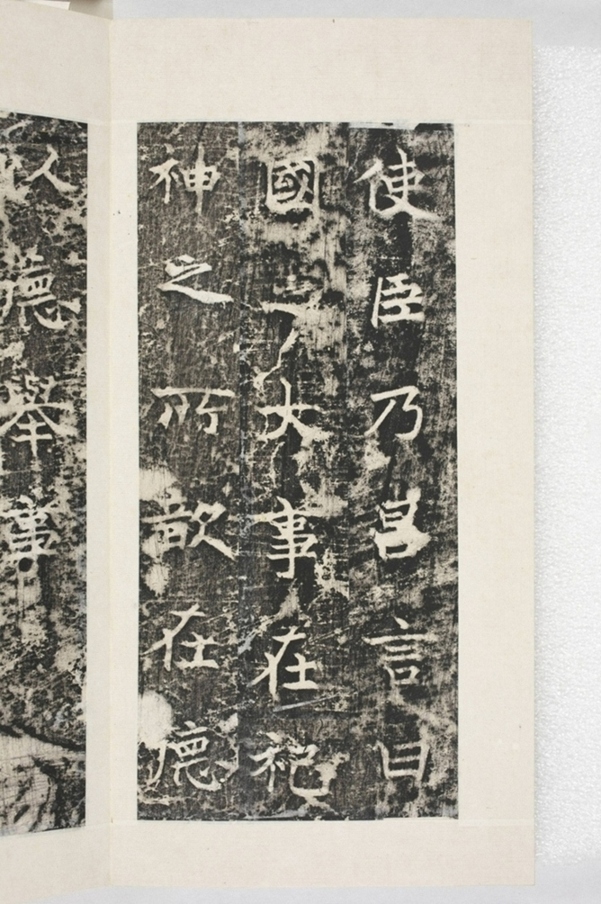 使臣乃昌言曰
國之大事在祀
神之所歆在德
人德舉事